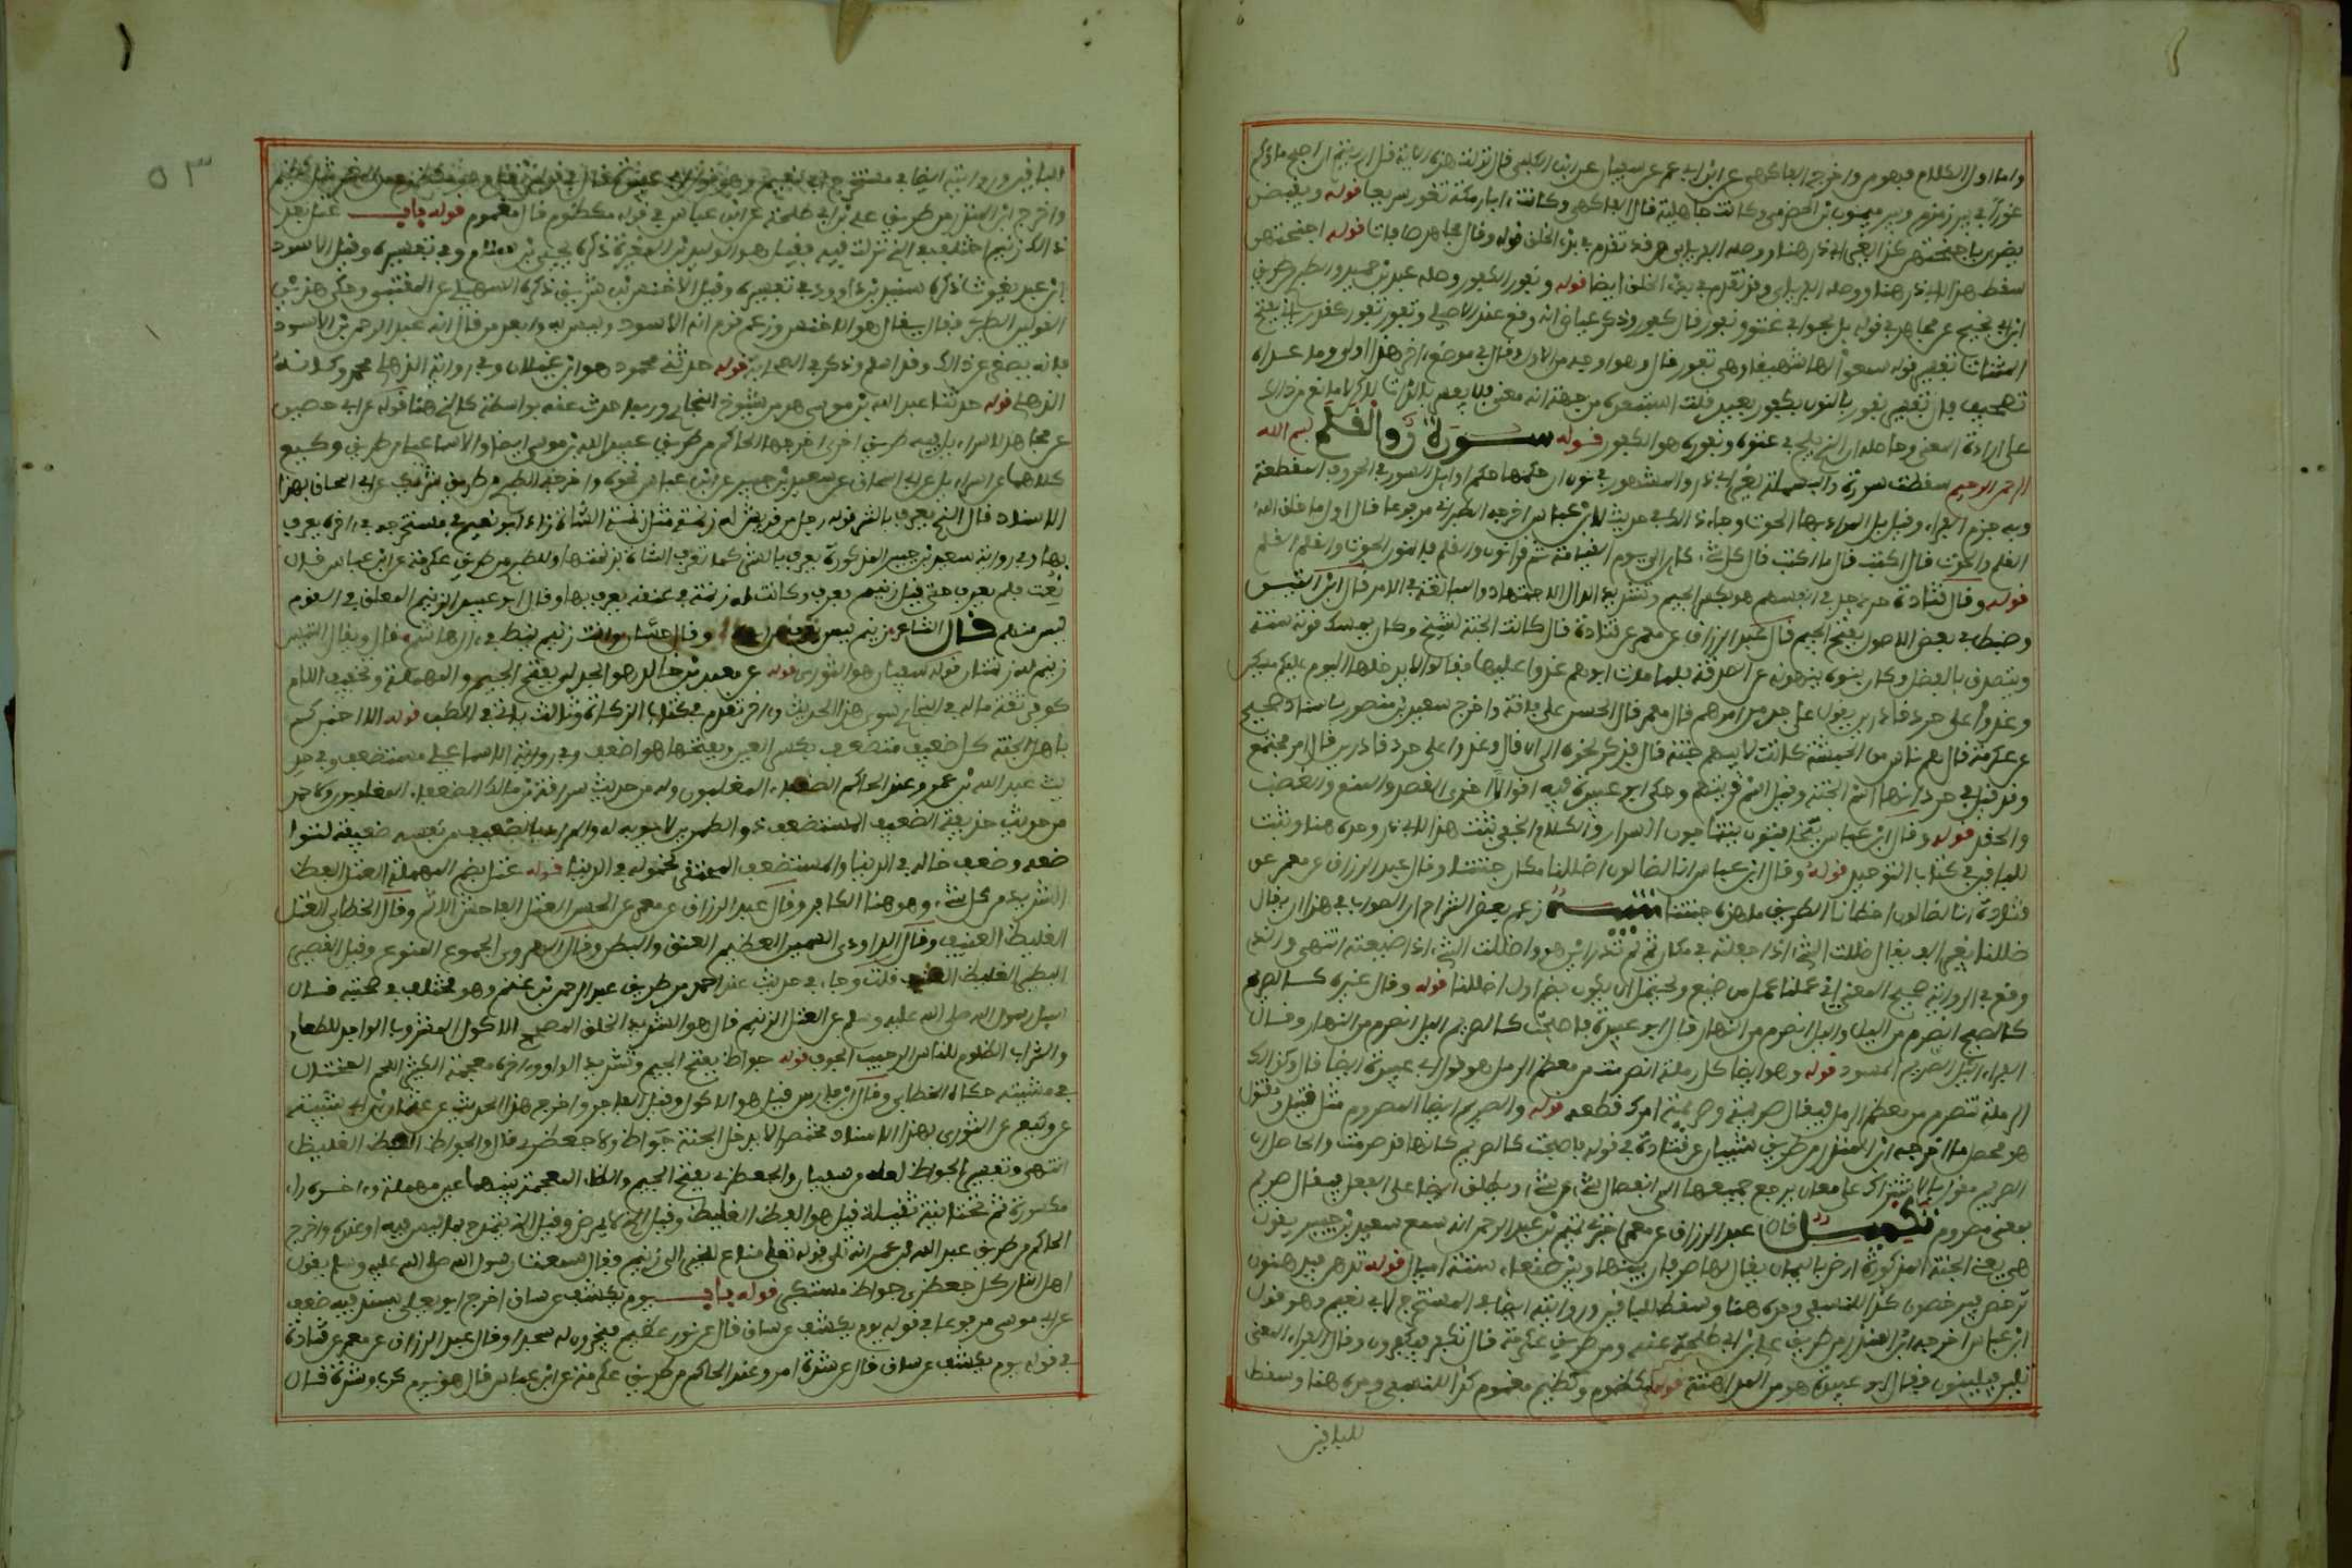 واما اول الكلام فهوم واخرج الفاكهي عن ابن ابي عمر عن سفيان عن ابن الكلبي قال نزلت هذه الاية قل ارايتم ان اصبح ماؤكم
غورا في بير زمزم وبير ميمون بن الحضرمي وكانت جاهلية قال الفاكهي وكانت ابار مكة تغور سريعا قوله ويقبضن
يضربن باجنحتهن كذا لغير ابي ذر هنا ووصله الفريابي وقد تقدم في بدء الخلق قوله وقال مجاهد صافات قوله اجنحتهن
سقط هذا لابي ذر هنا ووصله الفريابي وقد تقدم في بدء الخلق ايضا قوله ونفور الكفور وصله عبد بن حميد والطبري من طريق
ابن ابي نجيح عن مجاهد في قوله بل لجوا في عتو ونفور قال كفور وذكر عياض انه وقع عند الاصيلي وتفور تفور كقدر بفتح
المثناة تفسير قوله سمعوا لها شهيقا وهي تفور قال وهو اوجه من الاول وقال في موضع اخر هذا اولى وما عداه
تصحيف فان تفسير نفور بالنون بكفور بعيد قلت استبعده من جهة انه معنى فلا يفسر بالذات لكن لا مانع من ذلك
على ارادة المعنى وحاصله ان الذي يلج في عتوه ونفوره هو الكفور قوله سورة ن والقلم بسم الله
الرحمن الرحيم سقطت سورة والبسملة لغير ابي ذر والمشهور في نون ان حكمها حكم اوايل السور في الحروف المقطعة
وبه جزم الفراء وقيل بل المراد بها الحوت وجاء ذلك في حديث لابن عباس اخرجه الطبراني مرفوعا قال اول ما خلق الله
القلم والحوت قال اكتب قال ما اكتب قال كل شيء كاين الى يوم القيامة ثم قرا نون والقلم فالنون الحوت والقلم القلم
قوله وقال قتادة حرد جد في انفسهم هو بكسر الجيم وتشديد الدال الاجتهاد والمبالغة في الامر قال ابن التين
وضبط في بعض الاصول بفتح الجيم قال عبد الرزاق عن معمر عن قتادة قال كانت الجنة لشيخ وكان يمسك قوت سنته
ويتصدق بالفضل وكان بنوه ينهونه عن الصدقة فلما مات ابوهم غدوا عليها فقالوا لا يدخلها اليوم عليكم مسكين
وغدوا على حرد قادرين يقول على جد من امرهم قال معمر قال الحسن على فاقة واخرج سعيد بن منصور باسناد صحيح
عن عكرمة قال هم ناس من الحبشة كانت لابيهم جنة قال فذكر نحوه الى ان قال وغدوا على حرد قادرين قال امر مجتمع
وقد قيل في حرد انها اسم الجنة وقيل اسم قريتهم وحكى ابو عبيدة فيه اقوالا اخرى القصد والمنع والغضب
والحقد قوله وقال ابن عباس يتخافتون ينتجون السرار والكلام الخفي ثبت هذا لابي ذر وحده هنا وثبت
للباقين في كتاب التوحيد قوله وقال ابن عباس انا لضالون اضللنا مكان جنتنا وقال عبد الرزاق عن معمر عن
قتادة انا لضالون اخطانا الطريق ما هذه جنتنا تنبيه زعم بعض الشراح ان الصواب في هذا ان يقال
ضللنا بغير الف يقال ضللت الشيء اذا جعلته في مكان ثم لم تدر اين هو واضللت الشيء اذا ضيعته انتهى والذي
وقع في الرواية صحيح المعنى اي عملنا عمل من ضيع ويحتمل ان يكون بضم اول اضللنا قوله وقال غيره كالصريم
كالصبح انصرم من الليل والليل انصرم من النهار قال ابو عبيدة فاصبحت كالصريم الليل انصرم من النهار وقال
الفراء الليل الصريم المسود قوله وهو ايضا كل رملة انصرمت من معظم الرمل هو قول ابي عبيدة ايضا قال وكذلك
الرملة تنصرم من معظم الرمل فيقال صريمة وصريمة امرك قطعه قوله والصريم ايضا المصروم مثل قتيل ومقتول
هو محصل ما اخرجه ابن المنذر من طريق شيبان عن قتادة في قوله فاصبحت كالصريم كانها قد صرمت والحاصل ان
الصريم مقول بالاشتراك على معان يرجع جميعها الى انفصال شيء عن شيء ويطلق ايضا على الفعل فيقال صريم
بمعنى مصروم تكميل قال عبد الرزاق عن معمر اخبرني تميم بن عبد الرحمن انه سمع سعيد بن جبير يقول
هي يعني الجنة المذكورة ارض باليمن يقال لها صرفان بينها وبين صنعاء ستة اميال قوله تدهن فيدهنون
ترخص فيرخصون كذا للنسفي وحده هنا وسقط للباقين ورايته ايضا في المستخرج لابي نعيم وهو قول
ابن عباس اخرجه ابن المنذر من طريق علي بن ابي طلحة عنه ومن طريق عكرمة قال تكفر فيكفرون وقال الفراء المعنى
تلين فيلينون وقال ابو عبيدة هو من المداهنة قوله مكظوم وكظيم مغموم كذا للنسفي وحده هنا وسقط
للباقين
٥٣
الباقين ورايته ايضا في مستخرج ابي نعيم وهو قول ابي عبيدة قال في قوله تعالى وهو مكظوم من الغم مثل كظيم
واخرج ابن المنذر من طريق علي بن ابي طلحة عن ابن عباس في قوله مكظوم قال مغموم قوله باب عتل بعد
ذلك زنيم اختلف في الذي نزلت فيه فقيل هو الوليد بن المغيرة ذكره يحيى بن سلام في تفسيره وقيل الاسود
ابن عبد يغوث ذكره سنيد بن داوود في تفسيره وقيل الاخنس بن شريق ذكره السهيلي عن القتيبي وحكى هذين
القولين الطبري فقال يقال هو الاخنس وزعم قوم انه الاسود وليس به وابعد من قال انه عبد الرحمن بن الاسود
فانه يصغر عن ذلك وقد اسلم وذكر في الصحابة قوله حدثني محمود هو ابن غيلان وفي رواية الذهلي محمد وكانه
الذهلي قوله حدثنا عبيد الله بن موسى هو من شيوخ البخاري وربما حدث عنه بواسطة كالذي هنا قوله عن ابي حصين
عن مجاهد لاسراءيل فيه طريق اخرى اخرجها الحاكم من طريق عبيد الله بن موسى ايضا والاسماعيلي من طريق وكيع
كلاهما عن اسراءيل عن ابي اسحاق عن سعيد بن جبير عن ابن عباس نحوه واخرجه الطبري من طريق شريك عن ابي اسحاق بهذا
الاسناد قال الذي يعرف بالشر قوله رجل من قريش له زنمة مثل زنمة الشاة زاد ابو نعيم في مستخرجه في اخره يعرف
بها وفي رواية سعيد بن جبير المذكورة يعرف بالشر كما تعرف الشاة بزنمتها وللطبري من طريق عكرمة عن ابن عباس قال
نعت فلم يعرف حتى قيل زنيم فعرف وكانت له زنمة في عنقه يعرف بها وقال ابو عبيدة الزنيم المعلق في القوم
ليس منهم قال الشاعر زنيم ليس يعرف من ابوه وقال حسان وانت زنيم نيط في ءال هاشم قال ويقال للتيس
زنيم له زنمتان قوله سفيان هو الثوري قوله عن معبد بن خالد هو الجدلي بفتح الجيم والمهملة وتخفيف اللام
كوفي ثقة ما له في البخاري سوى هذا الحديث واخر تقدم في كتاب الزكاة وثالث ياتي في الطب قوله الا اخبركم
باهل الجنة كل ضعيف متضعف بكسر العين وبفتحها وهو اضعف وفي رواية الاسماعيلي مستضعف وفي حد
يث عبد الله بن عمرو عند الحاكم الضعفاء المغلوبون وله من حديث سراقة بن مالك الضعفاء المغلوبون ولاحمد
من حديث حذيفة الضعيف المستضعف ذو الطمرين لا يوبه له والمراد بالضعيف من نفسه ضعيفة لتوا
ضعه وضعف حاله في الدنيا والمستضعف المحتقر لخموله في الدنيا قوله عتل بضم المهملة العتل الفظ
الشديد من كل شيء وهو هنا الكافر وقال عبد الرزاق عن معمر عن الحسن العتل الفاحش الاثم وقال الخطابي العتل
الغليظ العنيف وقال الداودي السمين العظيم العنق والبطن وقال الهروي الجموع المنوع وقيل القصير
البطين الغليظ قلت وجاء في حديث عند احمد من طريق عبد الرحمن بن غنم وهو مختلف في صحبته قال
سيل رسول الله صلى الله عليه وسلم عن العتل الزنيم قال هو الشديد الخلق المصحح الاكول الشروب الواجد للطعام
والشراب الظلوم للناس الرحيب الجوف قوله جواظ بفتح الجيم وتشديد الواو واخره معجمة الكثير اللحم المختال
في مشيته حكاه الخطابي وقال ابن فارس قيل هو الاكول وقيل الفاجر واخرج هذا الحديث عن عثمان بن ابي شيبة
عن وكيع عن الثوري بهذا الاسناد مختصرا لا يدخل الجنة جواظ ولا جعظري قال والجواظ الفظ الغليظ
انتهى وتفسير الجواظ لعله من سفيان والجعظري بفتح الجيم والظاء المعجمة بينهما عين مهملة واخره راء
مكسورة ثم تحتانية ثقيلة قيل هو الفظ الغليظ وقيل الذي لا يمرض وقيل الذي يتمدح بما ليس فيه او عنده واخرج
الحاكم من طريق عبد الله بن عمر انه تلى قوله تعلى مناع للخير الى زنيم فقال سمعت رسول الله صلى الله عليه وسلم يقول
اهل النار كل جعظري جواظ مستكبر قوله باب يوم يكشف عن ساق اخرج ابو يعلى بسند فيه ضعف
عن ابي موسى مرفوعا في قوله يوم يكشف عن ساق قال عن نور عظيم فيخرون له سجدا وقال عبد الرزاق عن معمر عن قتادة
في قوله يوم يكشف عن ساق قال عن شدة امر وعند الحاكم من طريق عكرمة عن ابن عباس قال هو يوم كرب وشدة قال